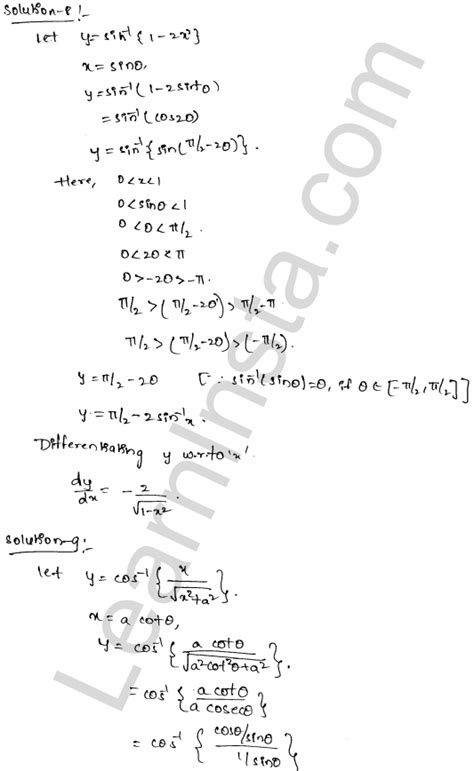 Solution-8:-
Let y = sin⁻¹{1-2x²}
x = sinθ,
y = sin⁻¹(1-2sin²θ)
= sin⁻¹(cos2θ)
y = sin⁻¹{sin(π/2-2θ)}.
Here, 0<x<1
0<sinθ<1
0<θ<π/2.
0<2θ<π
0>-2θ>-π.
π/2>(π/2-2θ)>π/2-π
π/2>(π/2-2θ)>(-π/2).
y = π/2-2θ [∵ sin⁻¹(sinθ)=θ, if θ∈[-π/2, π/2]]
y = π/2-2sin⁻¹x.
Differentiating y w.r.to 'x'.
dy/dx = -2/√(1-x²).
Solution-9:-
Let y = cos⁻¹{x/√(x²+a²)}.
x = a cotθ,
y = cos⁻¹{a cotθ/√(a²cot²θ+a²)}.
= cos⁻¹{a cotθ/a cosecθ}
= cos⁻¹{cosθ/sinθ / 1/sinθ}
LearnInsta.com